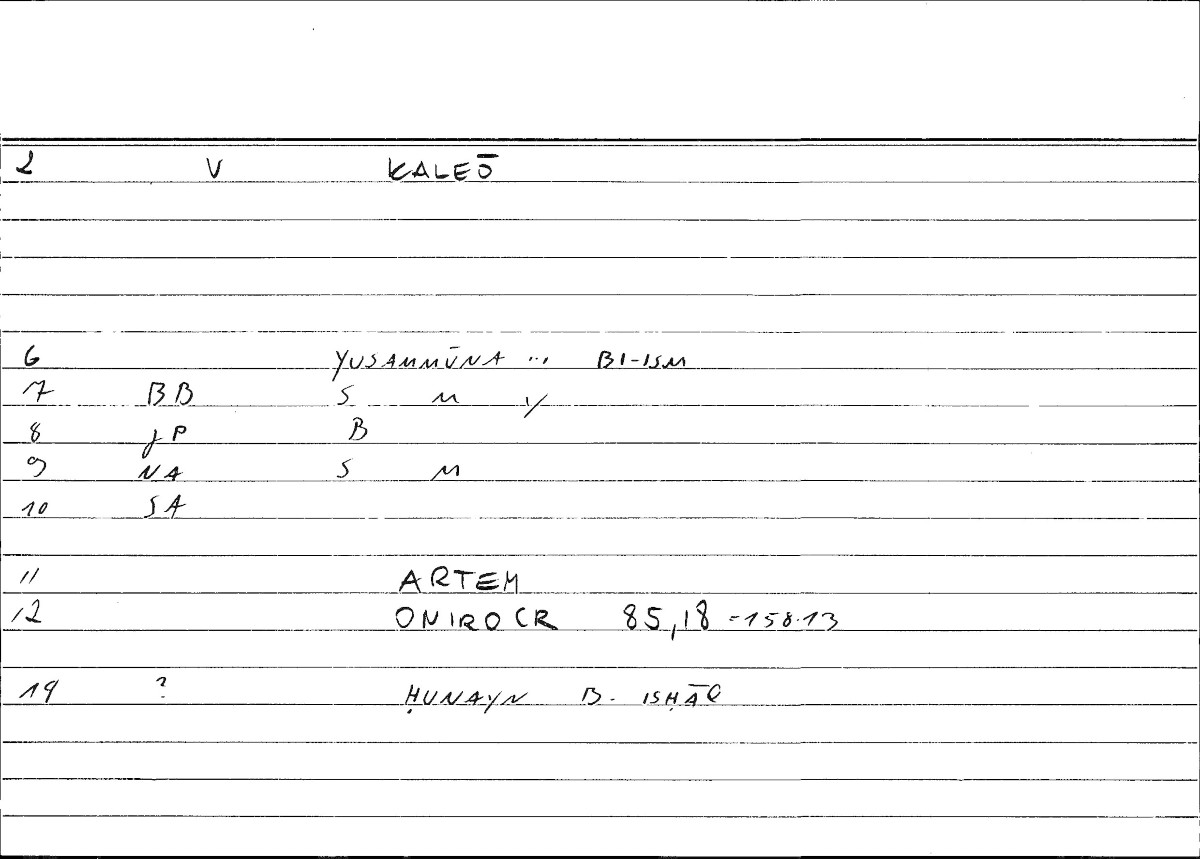 2 V KALEŌ
6 YUSAMMŪNA ... BI-ISM
7 BB S M Y
8 JP B
9 NA S M
10 SA
11 ARTEM
12 ONIROCR 85,18 = 158.13
19 ? ḤUNAYN B. ISḤĀQ